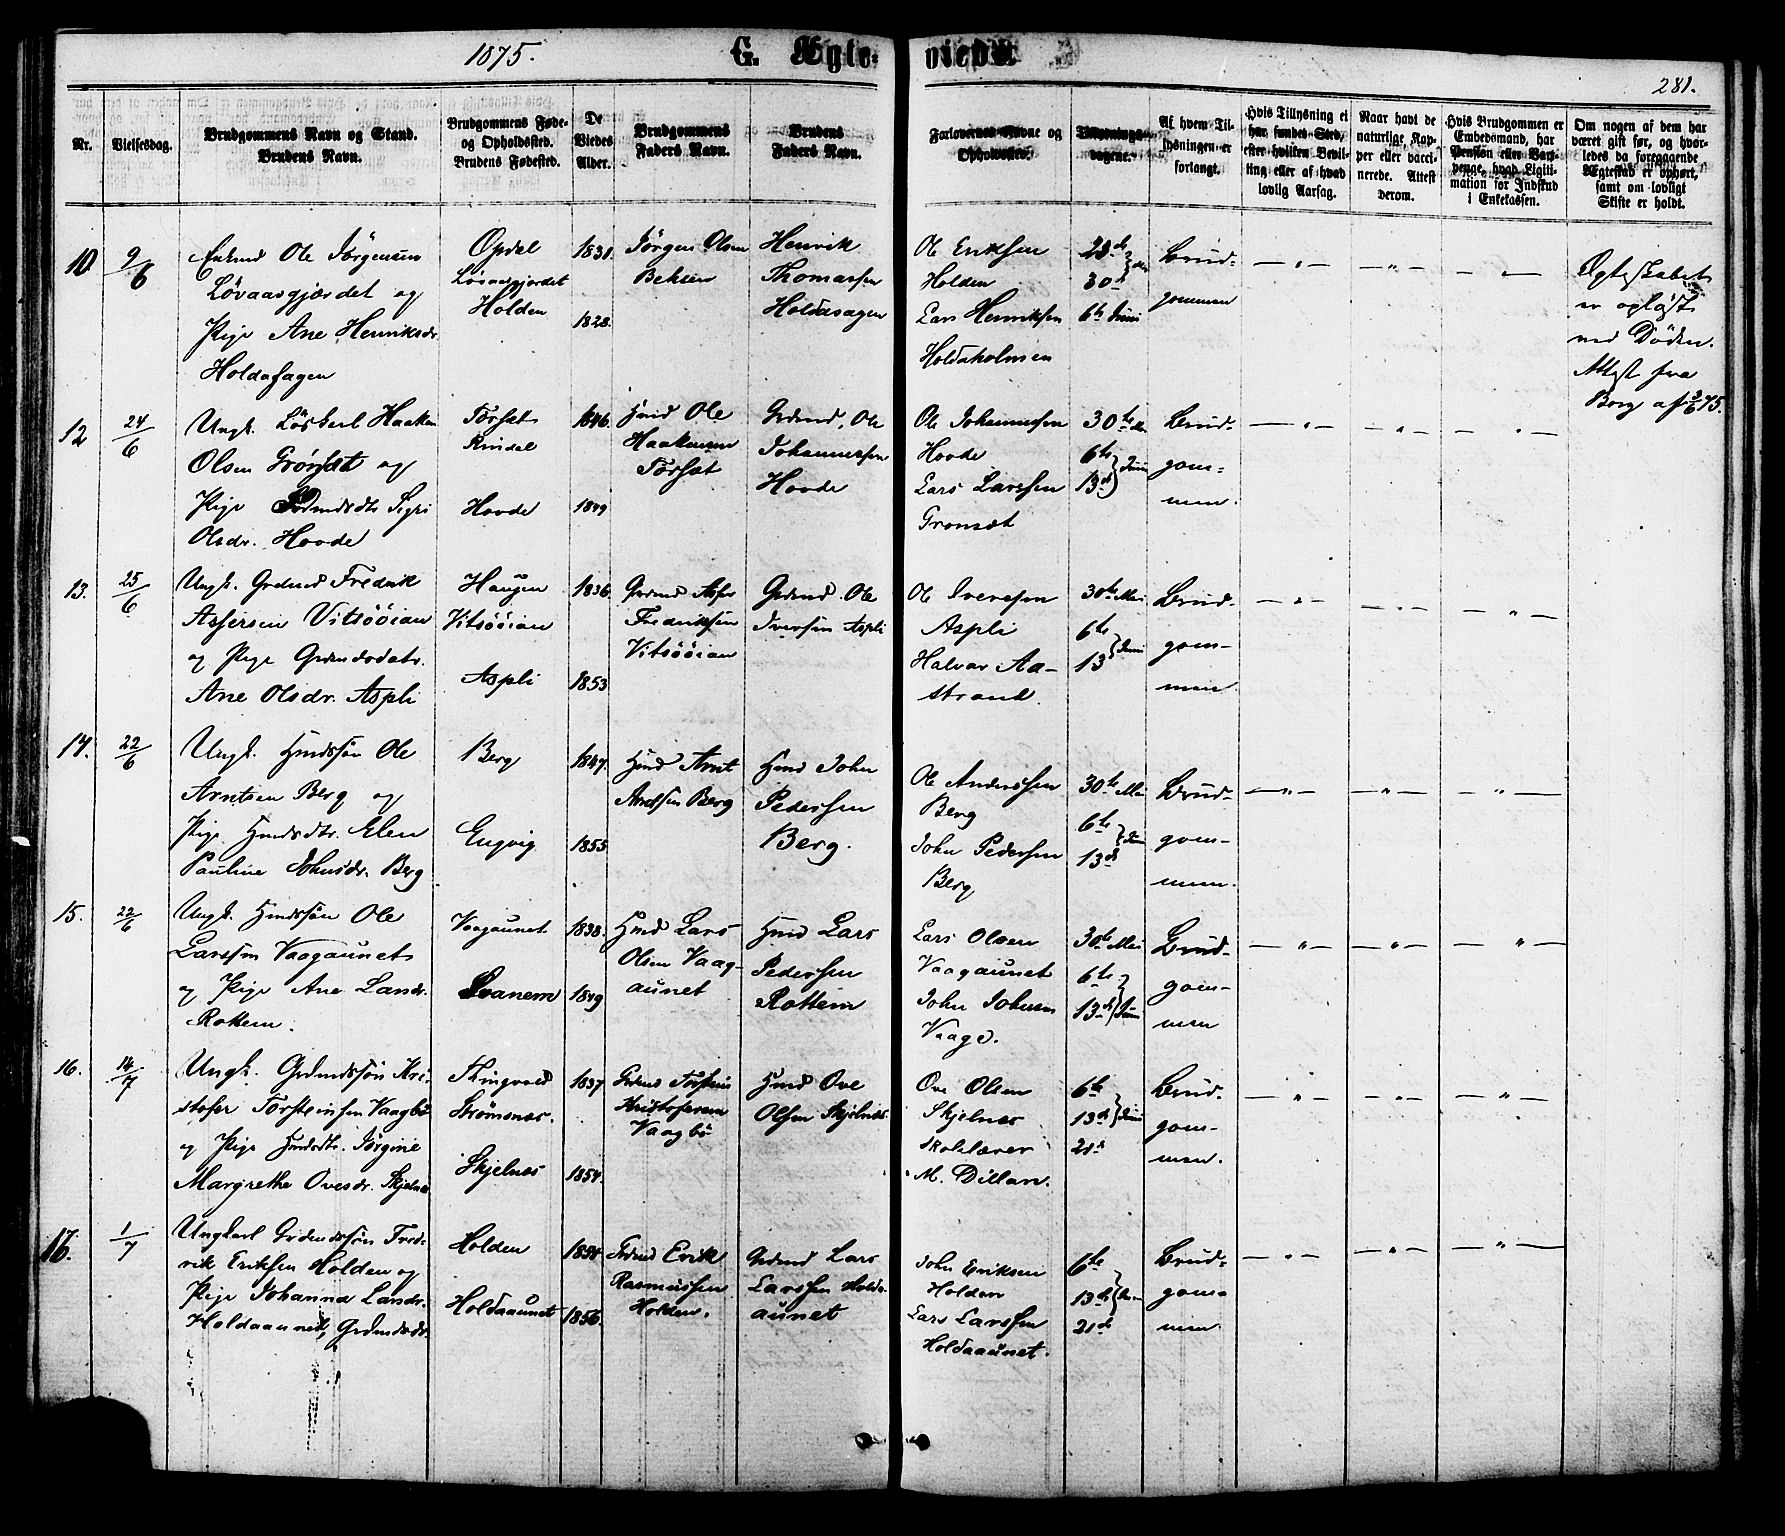 1875.
G. Ægte-
viede.
281.
Nr.
Vielsesdag.
Brudgommens Navn og Stand.
Brudens Navn.
Brudgommens Føde-
og Opholdssted.
Brudens Fødested.
De
Viedes
Alder.
Brudgommens
Faders Navn.
Brudens
Faders Navn.
Forlovernes Navne og
Opholdssted.
Tillysnings-
dagene.
Af hvem Til-
lysningen er
forlangt.
Hvis Tillysning ei
har fundet Sted,
efter hvilken Bevil-
ling eller af hvad
lovlig Aarsag.
Naar havt de
naturlige Kop-
per eller vacci-
nerede. Attest
derom.
Hvis Brudgommen er
Embedsmand, har
Pension eller Vart-
penge, hvad Ligiti-
mation for Indskud
i Enkekassen.
Om nogen af dem har
været gift før, og hvor-
ledes da foregaaende
Ægteskab er ophørt,
samt om lovligt
Skifte er holdt.
10.
9/6
Enkmd Ole Jörgensen
Løvaasgjærdet og
Pige Ane Henriksdr.
Holdahagen
Opdal
Løvaasgjærdet
Holden
1831.
1828.
Jörgen Olsen
Henrik
Thomassen
Holdahagen
Ole Eriksen
Holden
Lars Henriksen
Holdaholmen
23de
30te
6te Juni
Brud-
gommen
Ægteskabet
er opløst
ved Døden.
Attest fra
Borg af 2/6 75.
12
24/6
Ungk. Løskarl Haaken
Olsen Grønsæt og
Pige Grdmdsdtr Sigri
Olsdr. Hovde
Torsæt
Rindal
Hovde
1846.
1849
Hmd Ole
Haakensen
Torsæt
Grdmd. Ole
Johannessen
Hovde
Ole Johannessen
Hovde
Lars Larssen
Gronsæt
30te Mai
6te
13de Juni
Brud-
gom-
men.
13.
25/6
Ungk. Grdmd Fredrik
Assersen Vitsööian
og Pige Grdmdsdatr.
Ane Olsdr. Aspli
Haugen
Vitsööian
Aspli
1836.
1853
Grdmd Asser
Fredriksen
Vitsööian
Grdmd Ole
Iversen Aspli
Ole Iversen
Aspli
Halvor Aa-
strand.
30te Mai
6te
13 Juni
Brud-
gom-
men.
14.
22/6
Ungk. Hmdssön Ole
Arntsen Berg og
Pige Hmdsdtr. Elen
Pauline Johnsdr. Berg
Berg
Engvig
1847.
1855
Hmd Arnt
Berg
Hmd John
Pedersen
Berg.
Ole Anderssen
Berg
John Pedersen
Berg
30te Mai
6te
13de Juni
Brud-
gom-
men.
15.
22/6
Ungk. Hmdssön Ole
Larssen Vaagaunet
og Pige Ane Larsdr.
Rottem.
Vaagaunet
Svanem
1838.
1849
Hmd Lars
Olsen Vaag-
aunet
Hmd Lars
Pedersen
Rottem
Lars Olsen
Vaagaunet
John Johnsen
Vaage.
30te Mai
6te
13de Juni
Brud-
gom-
men
16.
14/7
Ungk. Grdmdssön Kri-
stofer Torsteinsen Vaagbö
og Pige Hmdsdtr. Jörgine
Margrethe Ovesdr. Skjelnes
Thingvold
Strömsnes.
Skjelnes
1837
1854.
Grdmd Torstein
Kristofersen
Vaagbö
Hmd Ove
Olsen Skjelnes.
Ove Olsen
Skjelnes
Skolelærer
M. Dillan.
6te
13de Juni
21de
Brud-
gom-
men.
17.
1/7
Ungkarl Grdmdssön Fred-
rik Eriksen Holden og
Pige Johanna Larsdr.
Holdaaunet, Grdmdsdr.
Holden
Holdaaunet
1856.
Grdmd Erik
Rasmussen
Holden.
Grdmd Lars
Larssen Holda-
aunet
John Eriksen
Holden
Lars Larssen
Holdaaunet.
6te
13de Juni
21de
Brud-
gom-
men